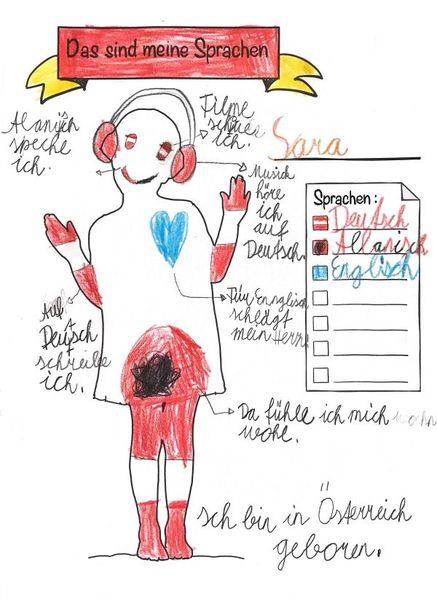 Das sind meine Sprachen
Alanisch
speche
ich.
Filme
schaue
ich.
Sara
Musick
höre
ich
auf
Deutsch.
Sprachen:
Deutsch
Albanisch
Englisch
Auf
Deutsch
schreibe
ich.
Für Ennglisch
schlägt
mein
Da fühle ich mich
wohl.
Ich bin in Österreich
geboren.